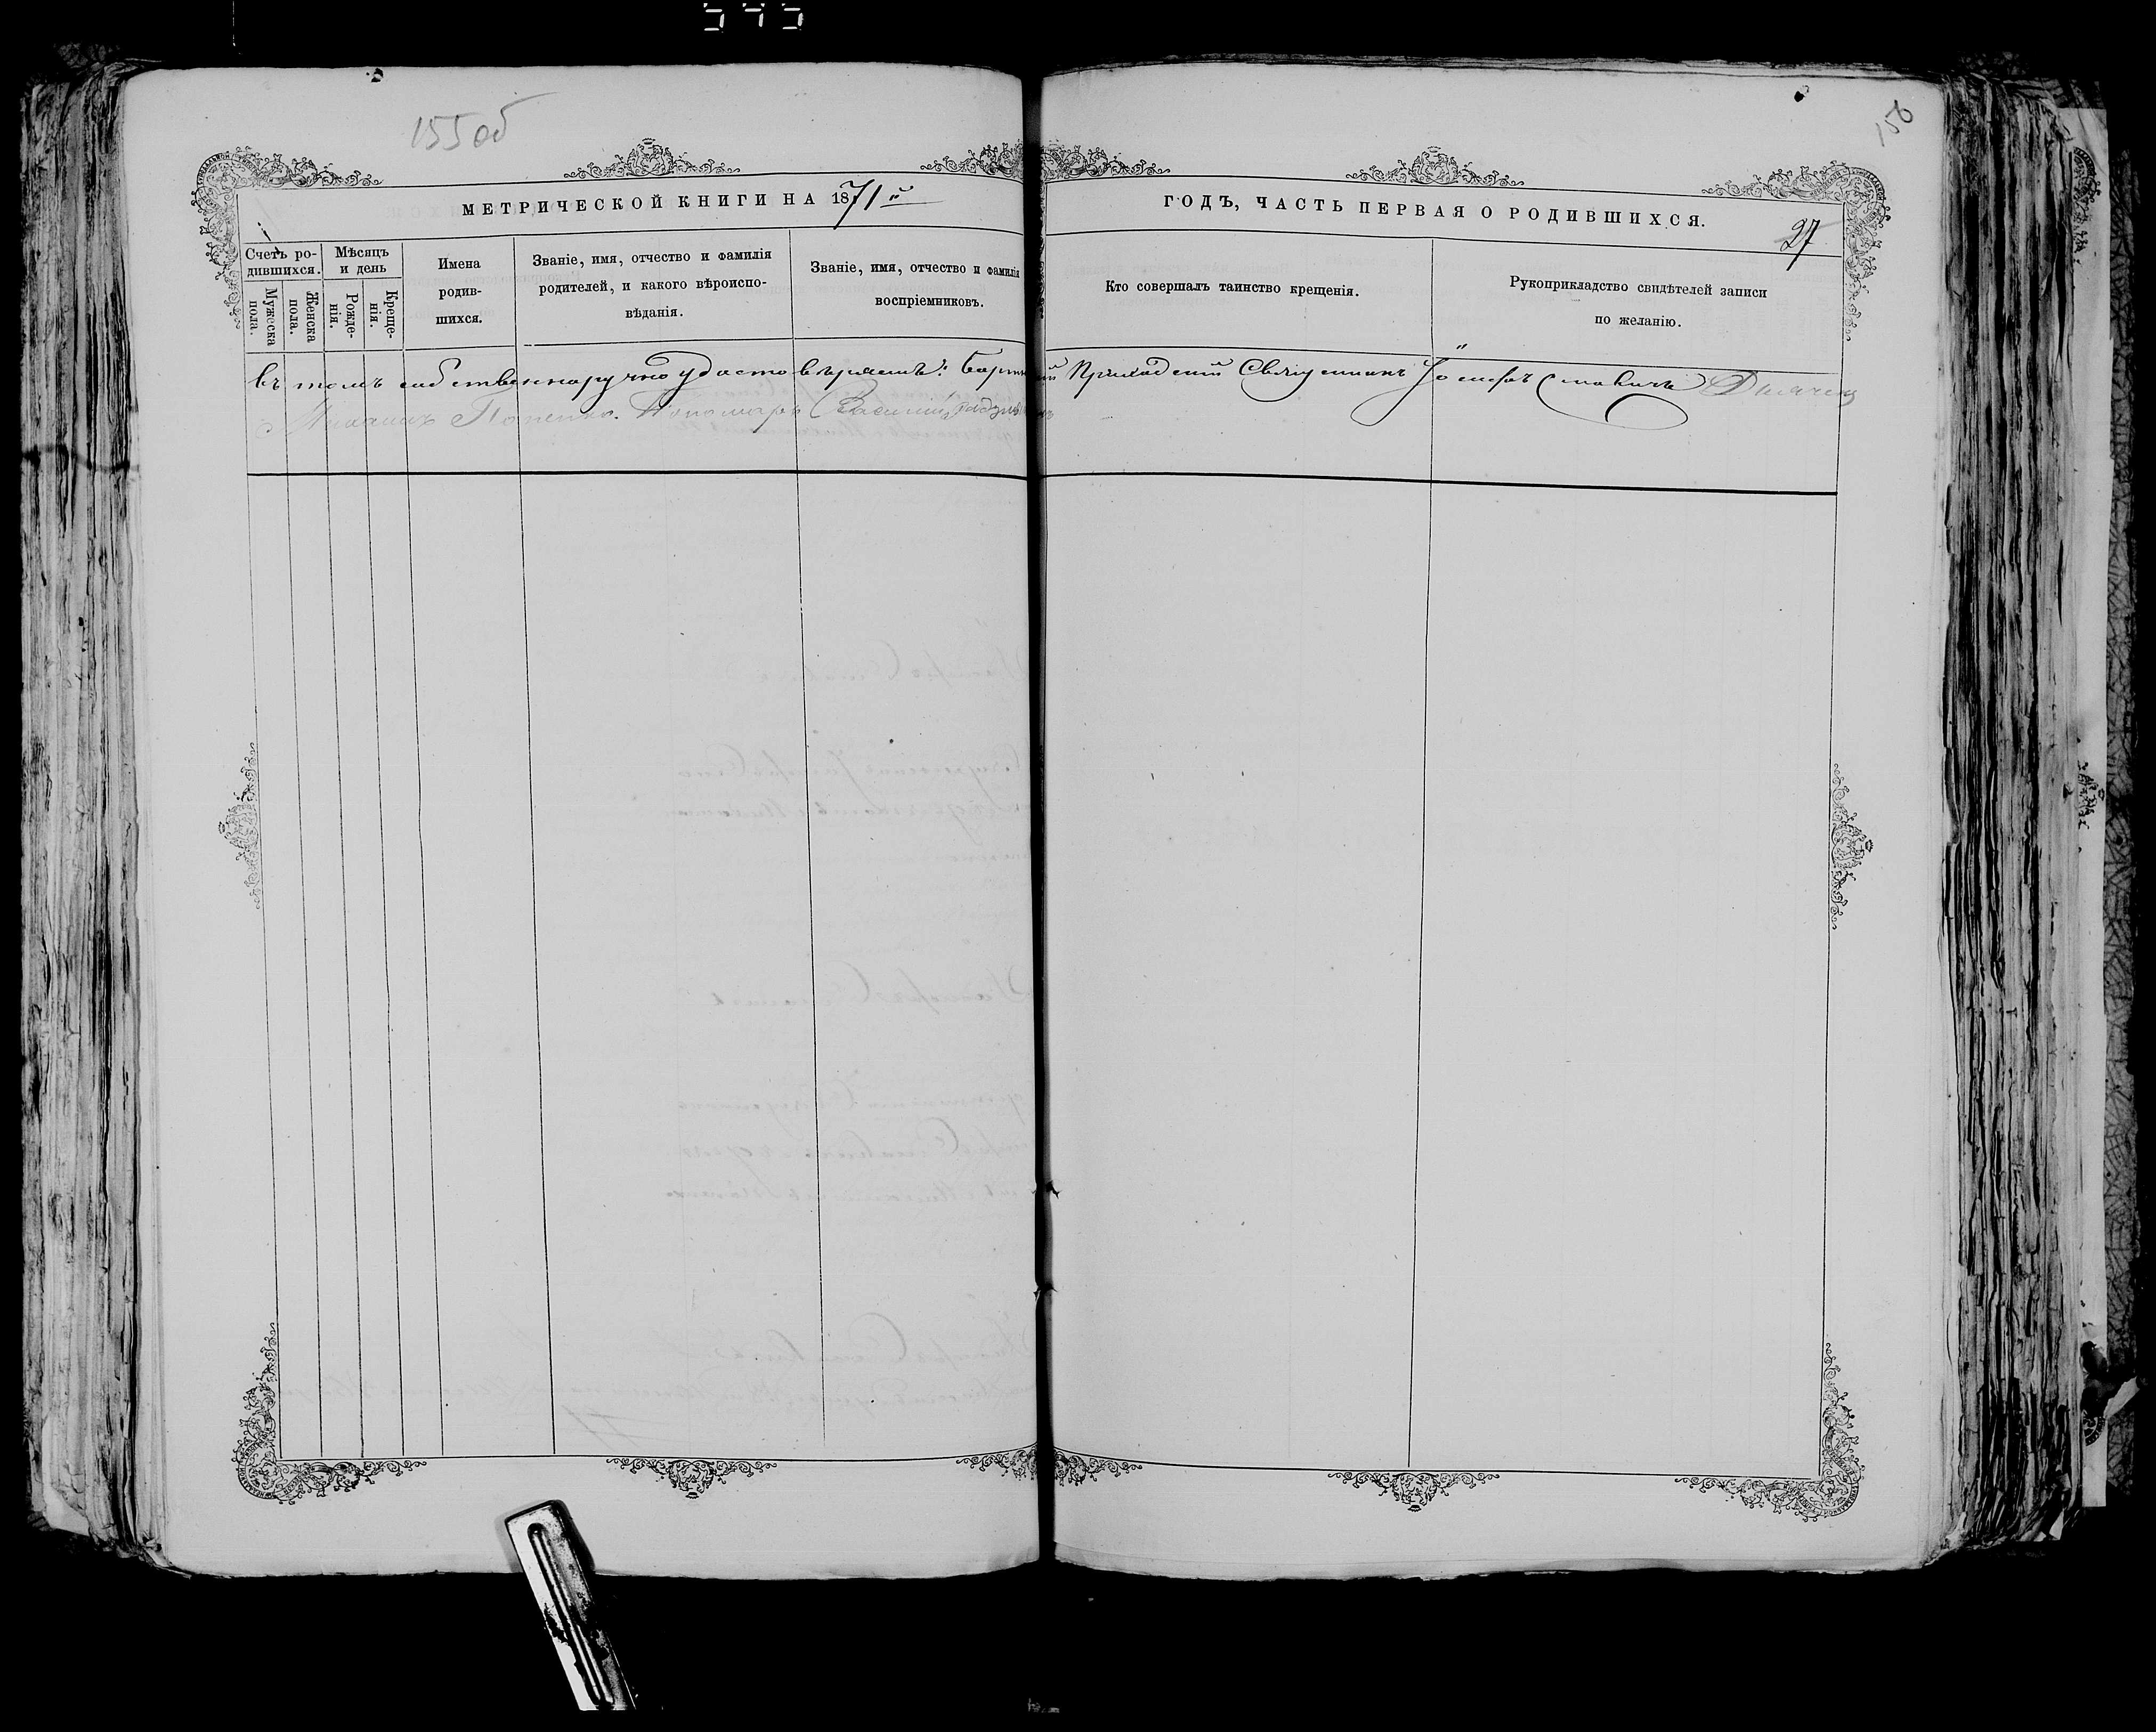 545
155 об
156
МЕТРИЧЕСКОЙ КНИГИ НА 1871й
ГОДЪ, ЧАСТЬ ПЕРВАЯ О РОДИВШИХСЯ.
27
Счетъ ро-
дившихся.
Мужеска
пола.
Женска
пола.
Мѣсяцъ
и день
Рожде-
нія.
Креще-
нія.
Имена
родив-
шихся.
Званіе, имя, отчество и фамилія
родителей, и какого вѣроиспо-
вѣданія.
Званіе, имя, отчество и фамилія
воспріемниковъ.
Кто совершалъ таинство крещенія.
Рукоприкладство свидѣтелей записи
по желанію.
въ томъ собственноручно удостовѣряемъ: Приходскій Священникъ Іосифъ
Михаилъ Пономарь Василій